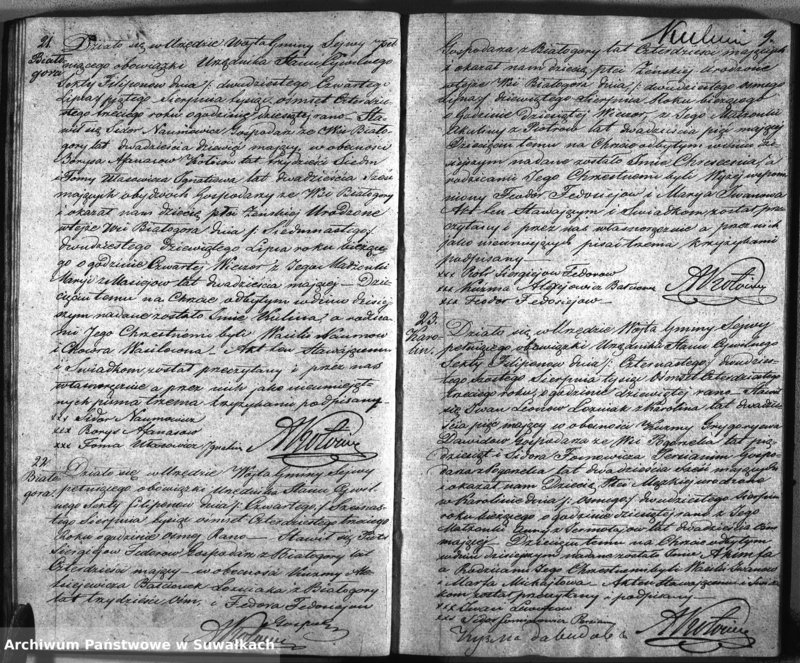 21.
Biało
gora
Działo się w Urzędzie Wójta Gminy Sejwy peł
niącego obowiązki Urzędnika Stanu Cywilnego
Sekty Filiponów dnia /: dwudziestego Czwartego
Lipca / piątego Sierpnia tysiąc ośmset Czterdzie
stego trzeciego roku o godzinie dziesiątej rano – Sta
wił się Sidor Naumowicz Gospodarz ze Wsi Biało
gory lat dwadzieścia dziewięć mający, w obecności
Borysa Afanasow lat trzydzieści Siedm
i Fomy lat dwadzieścia Sześć
mających obydwóch Gospodarzy ze Wsi Białogory
i okazał nam dziecię płci Żeńskiej Urodzone
w tejże Wsi Białogora dnia /: Siedmnastego /
dwudziestego dziewiątego Lipca roku bieżące
go o godzinie Czwartej Wieczor z Jego Małżonki
Maryi z lat dwadzieścia mającej – Dzie
cięciu temu na Chrzcie odbytym w dniu dzisiej
szym nadane zostało Imie Kulina, a rodzica
mi Jego Chrzestnemi byli Wasili Naumow
i Wasilowna. – Akt ten Stawającemu
i Świadkom został przeczytany i przez nas
własnoręcznie a przez nich jako nieumiejęt
nych pisma trzema krzyżykami podpisany
xxx Sidor Naumowicz
xxx Borys Afanasow
xxx Foma
22
Biało
gora.
Działo się w Urzędzie Wójta Gminy Sejwy
pełniącego obowiązki Urzędnika Stanu Cywil
nego Sekty Filiponów dnia /: Czwartego / Szesnas
tego Sierpnia tysiąc ośmset Czterdziestego trzeciego
Roku o godzinie osmej Rano – Stawił się Piotr
Siergiejow Fedorow Gospodarz z Białogory lat
Czterdzieści mający – w obecności Kuzmy Ale
xiejewicza z Białogory
lat trzydzieści ośm, i Fedora Fedosiejow
Gospod
9.
Gospodarza z Białogory lat Czterdzieści mających
i okazał nam dziecię płci Żeńskiej Urodzone
w tejże Wsi Białogora dnia /: dwudziestego osmego
Lipca / dziewiątego Sierpnia Roku bieżącego
o Godzinie Dziewiątej Wieczor, z Jego Małżonki
Akuliny z Piotrow lat dwadzieścia pięć mającej
Dziecięciu temu na Chrzcie odbytym w dniu dzi
siejszym nadane zostało Imie, a
rodzicami Jego Chrzestnemi byli Wyżej wspom
niony Feodor Fedosiejow i Marya Iwanowa
Akt ten Stawającym i Świadkom został prze
czytany i przez nas własnoręcznie a przez nich
jako nieumiejących pisać trzema krzyżykami
podpisany –
xxx Piotr Siergiejow Fedorow
xxx Kuźma Alexiejewicz
xxx Feodor Fedosiejow
23.
Karo
lin.
Działo się w Urzędzie Wójta Gminy Sejwy
pełniącego obowiązki Urzędnika Stanu Cywilnego
Sekty Filiponow dnia /: Czternastego / dwudzies
tego szostego Sierpnia tysiąc ośmset Czterdziestego
trzeciego roku o godzinie dziewiątej rano – Stawił
się Iwan Leonow z Karolina lat dwadzie
ścia pięć mający w obecności Kuzmy Grygoryewa
Dawidow Gospodarza ze Wsi Pogorelca lat pię
dziesiąt i Sidora Gospo
darza z Pogorelca lat dwadzieścia mających
i okazał nam Dziecię Płci Męzkiej urodzone
w Karolinie dnia /: Osmego / dwudziestego Sierpnia
roku bieżącego o godzinie dziesiątej rano z Jego
Małżonki Anny lat dwadzieścia
mającej. Dziecięciu temu na Chrzcie odbytym
w dniu dzisiejszym nadane zostało Imie Akimfa
a Rodzicami Jego Chrzestnemi byli Wasili Iwanow
i Marfa Michajłowa – Akt ten Stawającemu i Świad
kom został przeczytany i podpisany –
xxx Iwan Leonow
xxx Sidor
Archiwum Państwowe w Suwałkach